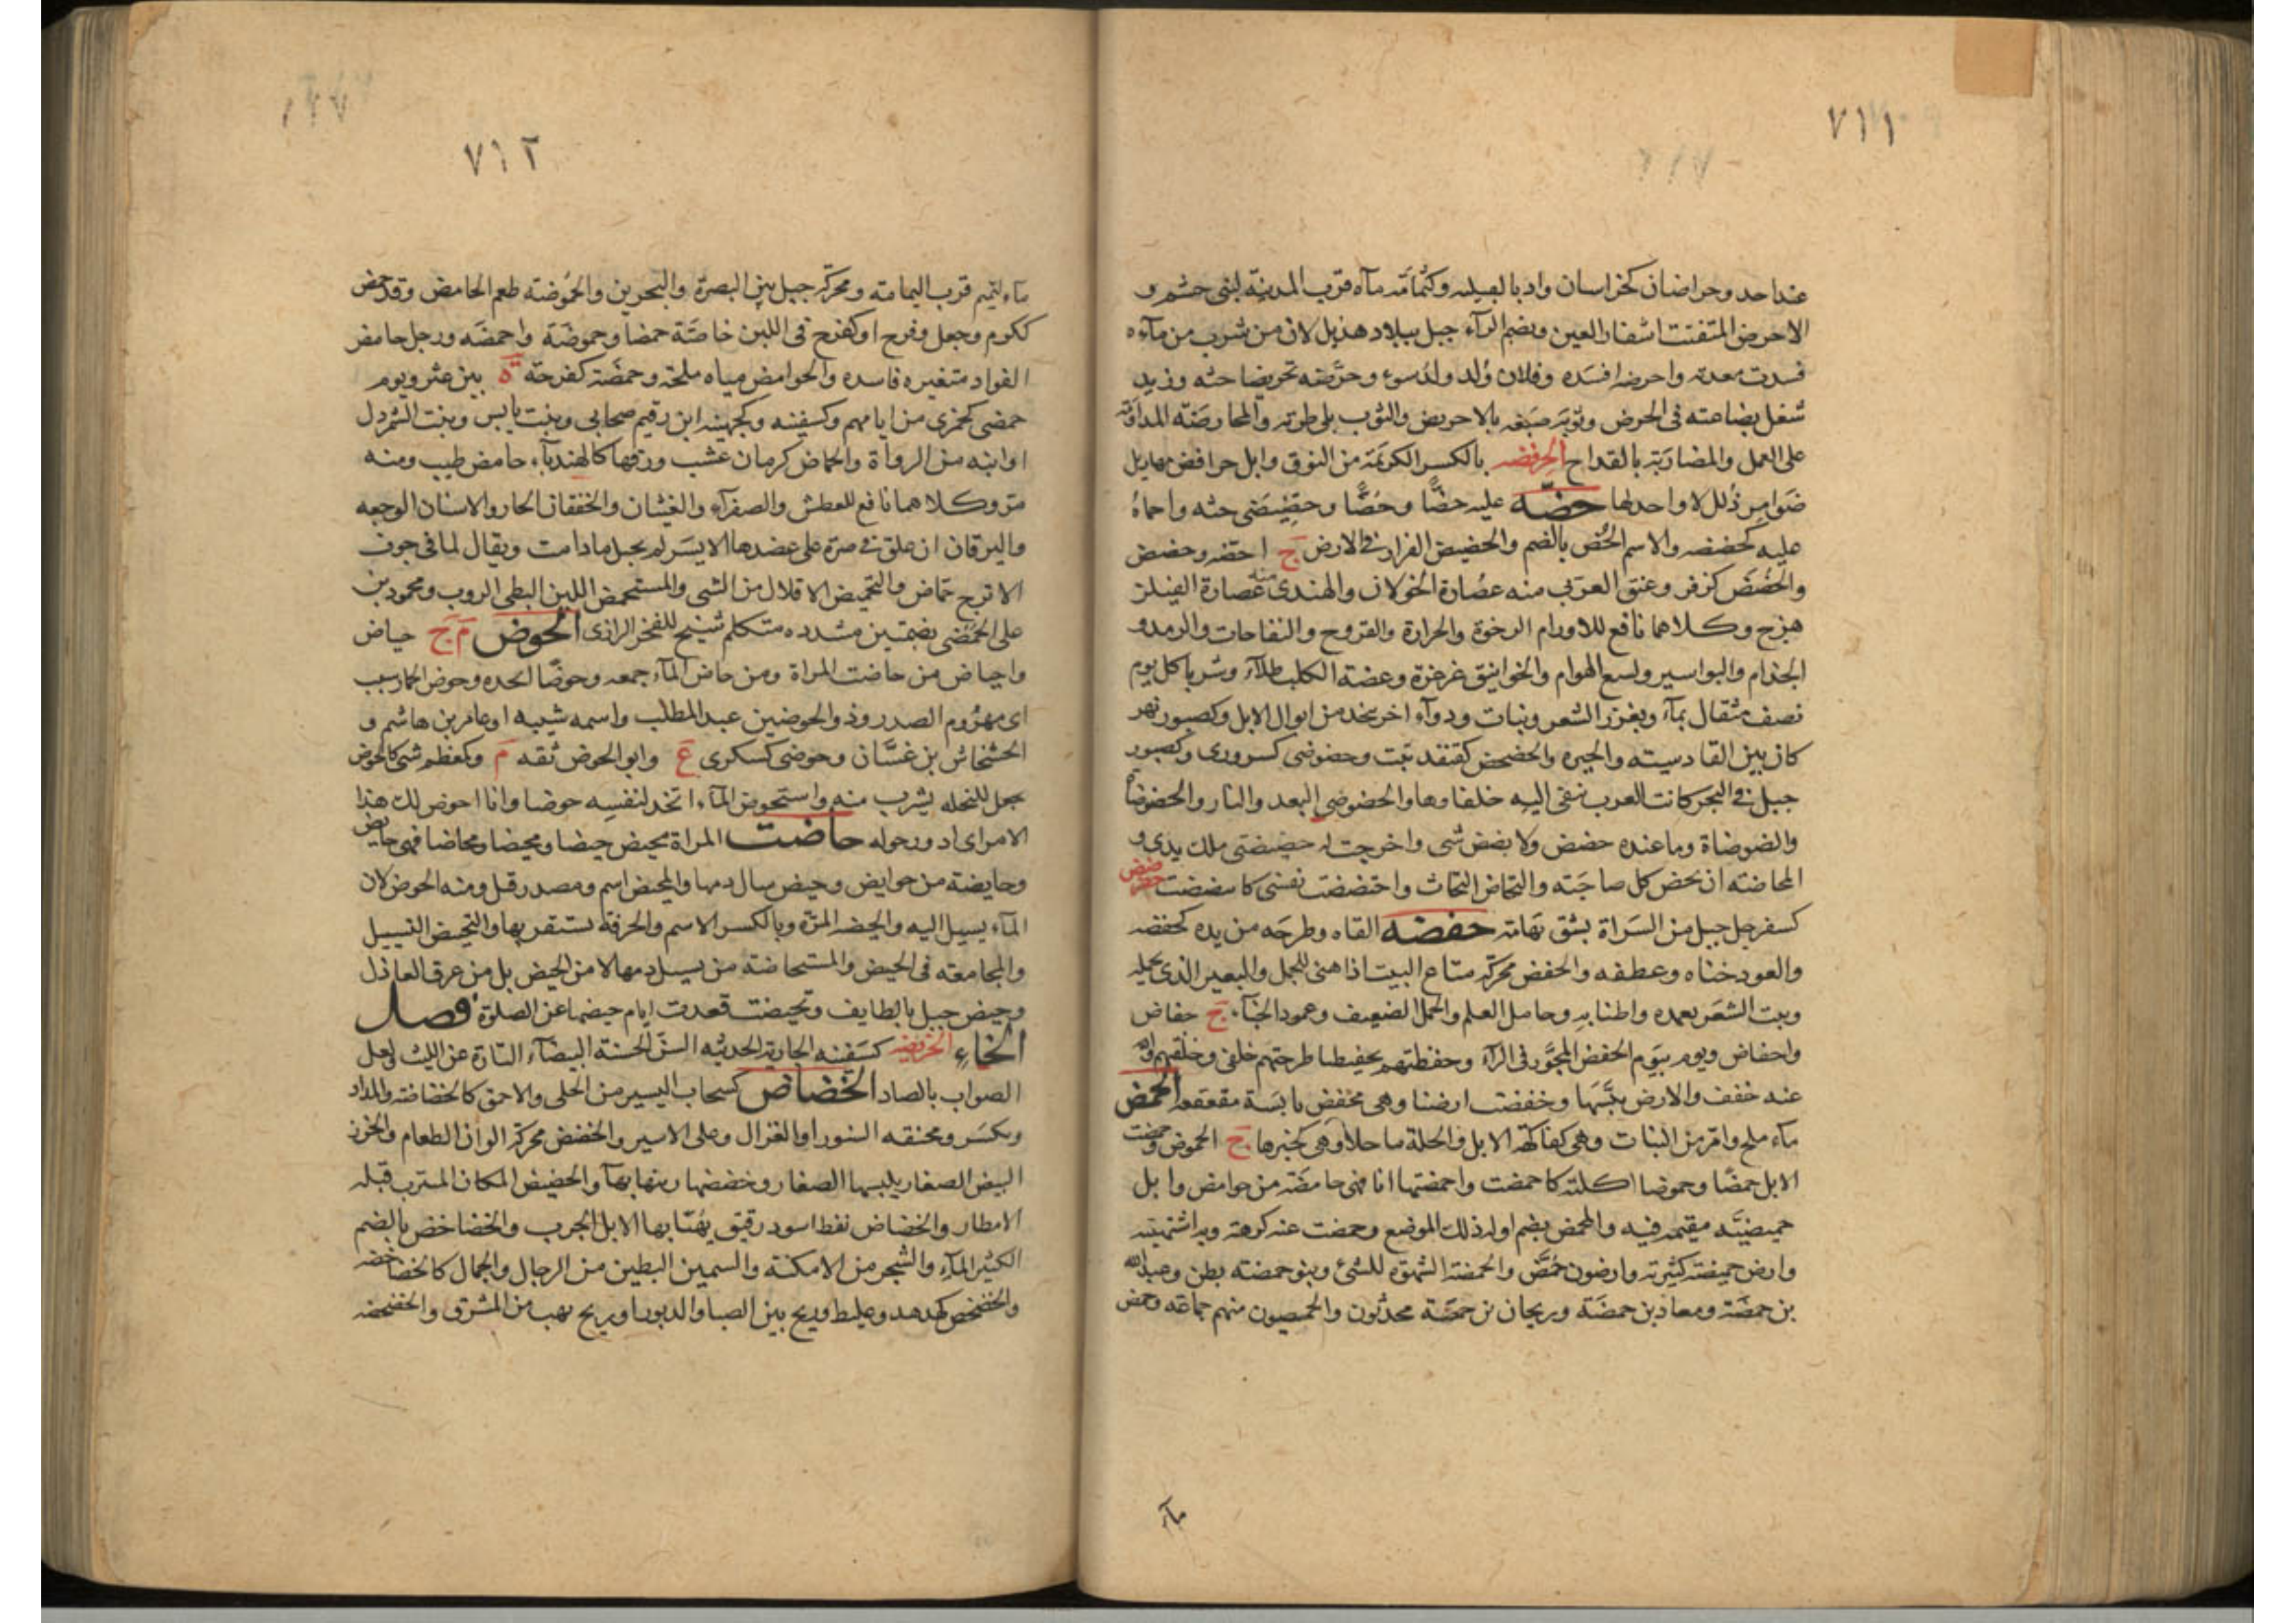 ٧١١
عند احد وحراضان كخراسان واد بالقبلية وكثمامة مآء قرب المدينة لبنى جشم و
الاحرض المتفتت اشفار العين وبضم الرآء جبل ببلاد هذيل لان من شرب من مآءه
فسدت معدته واحرضه افسده وفلان وُلد ولدُ سوء وحرّضه تحريضا حثه وزيد
شغل بضاعته فى الحرض وثوبه صبغه بالاحريض والثوب بلى طرته والمحارضة المداومة
على العمل والمضاربة بالقداح الحرفضة بالكسر الكريمة من النوق وابل حرافض مهازيل
ضوامر ذُلل لا واحد لها حضّه عليه حضًّا وحُضًّا وحضّيضى حثه واحماهُ
عليه كحضضه والاسم الحُض بالضم والحضيض القرار فى الارض ج احضه وحضض
والحُضُض كزفر وعنق العربى منه عصارة الخولان والهندى عصارة الفيلز
هرج وكلاهما نافع للاورام الرخوة والحرارة والقروح والنفاخات والرمد و
الجذام والبواسير ولسع الهوام والخوانيق غرغرة وعضة الكلب طلآء وشربا كل يوم
نصف مثقال بمآء ويغزر الشعر ونبات ودوآء اخر يتخذ من ابوال الابل وكصبور نهر
كان بين القادسيته والحيره والحضحض كقنفذ نبت وحضوضى كسرورى وكصبور
جبل فى البحر كانت العرب تنفى اليه خلفاوها والحضوضى البعد والنار والحضوضاة
والضوضاة وما عنده حضض ولا بضض شى واخرجت له حضيضتى ملك يدى و
المحاضه ان يحض كل صاحبه والتحاض التحاث واحتضضت نفسى كاستضضت حضض
كسفرجل جبل من السراة بشق تهامة حفضه القاه وطرحه من يده كحفضه
والعود حناه وعطفه والحفض محركة متاع البيت اذا هئى للحمل والبعير الذى يحمله
وبيت الشعر بعمده واطنابه وحامل العلم والجمل الضعيف وعمود الخبآء ج حفاض
واحفاض ويوم بيوم الحفض المجوّر فى الرآء وحفظتهم تحفيظا طرحتهم خلفى وخلفهم والله
عنه خفف والارض يبّسها وخفضت ارضنا وهى محفض يابسة مقعقعه الحمض
مآء ملح وامر من النبات وهى كفاكهة الابل والخلة ما حلا وهى كخبزها ج الحموض وحمضت
الابل حمضًا وحموضا اكلته كاحمضت واحمضتها انا فهى حامضة من حوامض وابل
حميضيّه مقيمه فيه والمحمض بضم اوله ذلك الموضع وحمضت عنه كرهته وبه اشتهيته
وارض حميضة كثيرته وارضون حُمضٌ والحمضة الشهوة للشئ وبنو حمضة بطن وعبدالله
بن حمضة ومعاذ بن حمضة وريحان بن حمضة محدثون والحمصيون منهم جماعة وحمض
مآء
٧١٢
مآء لتميم قرب اليمامة ومحركة جبل بين البصرة والبحرين والحُموضة طعم الحامض وقد حمض
ككرم وجعل وفرح اوكفرح فى اللبن خاصّة حمضا وحموضة واحمضه ورجل حامض
الفواد متغيره فاسده والحوامض مياه ملحة وحمضة كفرحة ة بين عثر ويوم
حمضى كجمزى من ايامهم وكسفينه وكجهينه ابن رقيم صحابى وبنت يابس وبنت الشمردل
او ابنه من الرواة والحماض كرمان عشب ورقها كالهندبآء حامض طيب ومنه
مرّ وكلاهما نافع للعطش والصفرآء والغشيان والخفقان الحار والاسنان الوجعه
واليرقان ان علق فى صره على عضدها الايسر لم يحبل مادامت ويقال لما فى جوف
الاترج حماض والتحميض الاقلال من الشى والمستحمض اللبن البطى الروب ومحمود بن
على الحمضى بضمتين مشدده متكلم شيخ للفخر الرازى الحوض م ج حياض
واحياض من حاضت المراة ومن حاض المآء جمعه وحوضًا اتخذه وحوض الحمار سب
اى مهزوم الصدر وذو الحوضين عبد المطلب واسمه شيبه او عامر بن هاشم و
الخشخاش بن غسّان وحوضى كسكرى ع وابو الحوض ثقه م وكمعظم شى كالحوض
يجعل للنخله يشرب منه واستحوض المآء اتخذ لنفسه حوضا وانا احوض لك هذا
الامر اى ادور حوله حاضت المراة تحيض حيضا ومحيضا ومحاضا فهى حايض
وحايضة من حوايض وحيض سال دمها والمحيض اسم ومصدر قيل ومنه الحوض لان
المآء يسيل اليه والحيضه المرّة وبالكسر الاسم والخرقة تستثفر بها والتحيض التسييل
والمجامعه فى الحيض والمستحاضة من يسيل دمها لا من الحيض بل من عرق العاذل
وحيض جبل بالطايف وتحيضت قعدت ايام حيضها عن الصلوة فصل
الخاء الخريضه كسفينه الجارية الحديثه السن الحسنة البيضآء التارة عن الليث ولعل
الصواب بالصاد الخضاض كسحاب اليسير من الحلى والاحمق كالخضاضة والمداد
ويكسر ومخنقه السنور او الغزال وعلى الاسير والخضض محركة الوان الطعام والخرز
البيض الصغار يلبسها الصغار وخضضها زينها بها والخضيض المكان المترب قبله
الامطار والخضاض نفط اسود رقيق يُهنا بها الابل الجرب والخضاخض بالضم
الكثير المآء والشجر من الامكنة والسمين البطين من الرجال والجمال كالخضاخضه
والخضخض كهدهد وعلبط وريح بين الصبا والدبور او ريح تهب من المشرق والخضخضه